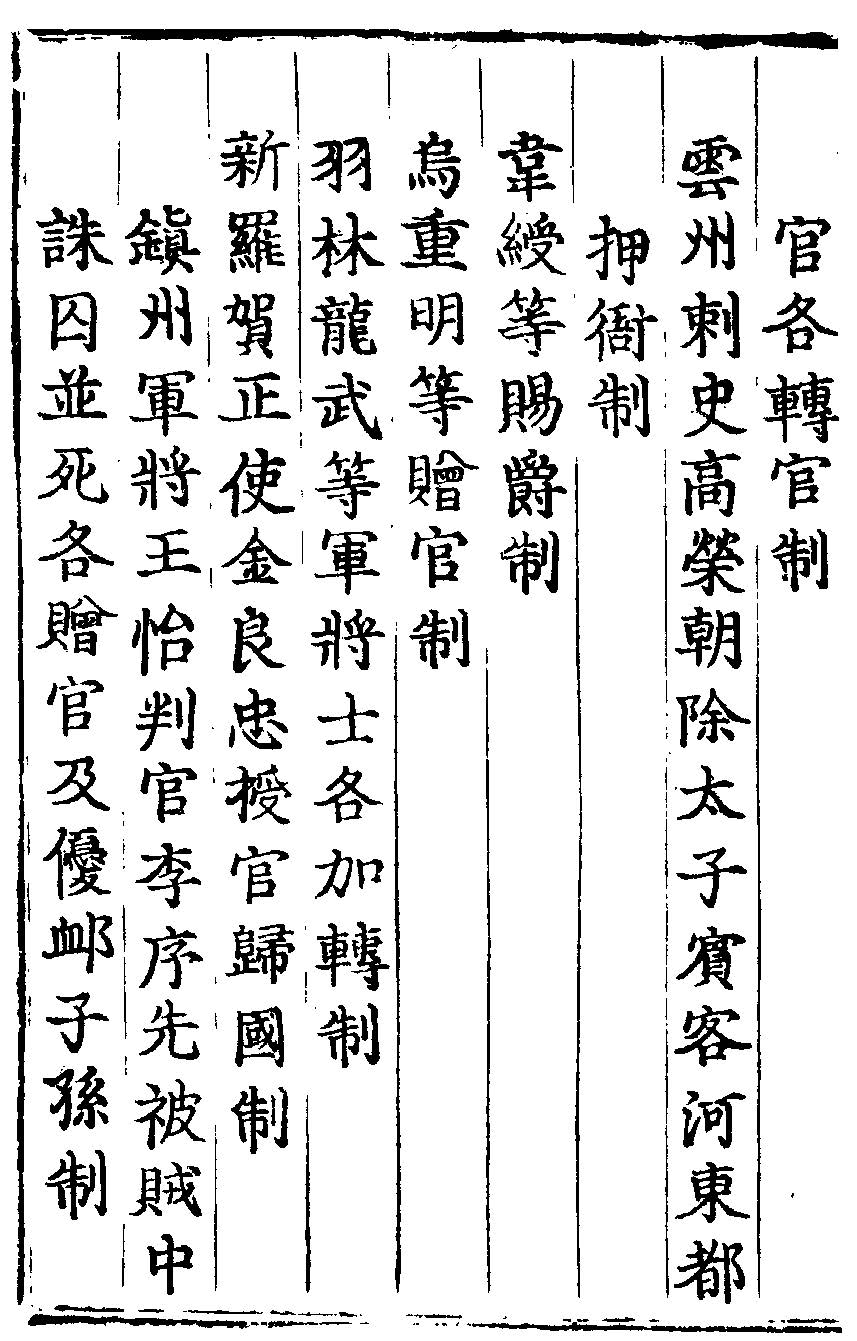 官各轉官制
雲州刺史高榮朝除太子賓客河東都
押衙制
韋綬等賜爵制
烏重明等贈官制
羽林龍武等軍將士各加轉制
新羅賀正使金良忠授官歸國制
鎮州軍將王怡判官李序先被賊中
誅囚並死各贈官及優䘏子孫制